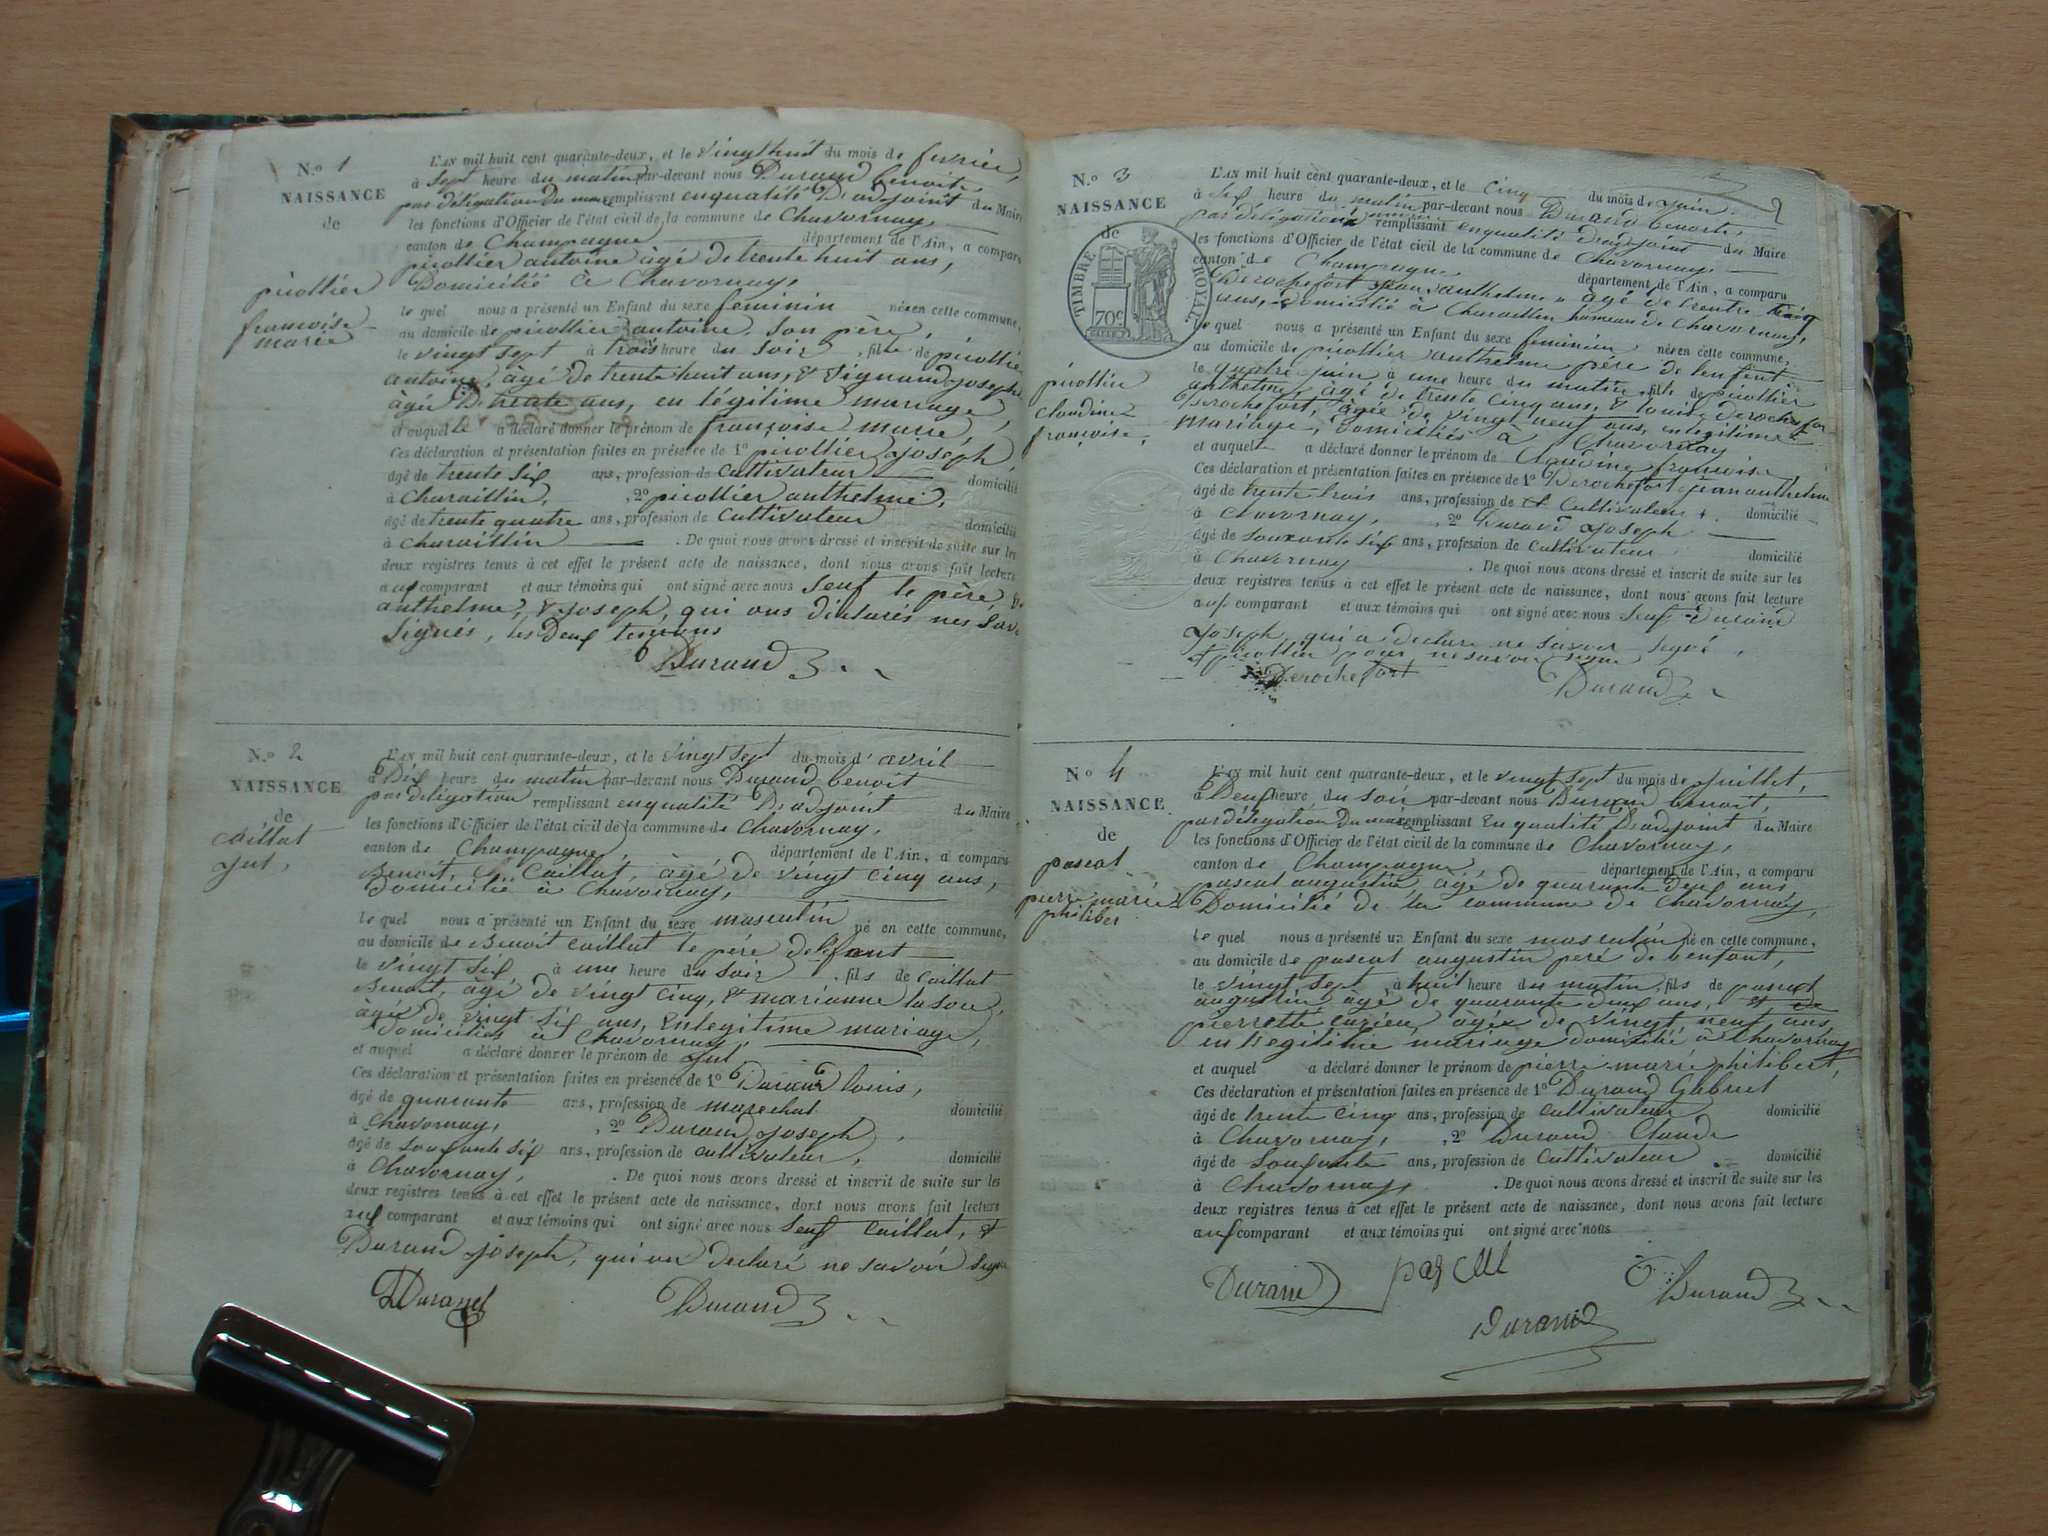 N.º 1
NAISSANCE
de
picollier
françoise
marie
L'AN mil huit cent quarante-deux, et le vingt huit du mois de fevrier,
à sept heure du matin par-devant nous Durand benoit,
par déligation du maire remplissant en qualité D'adjoint du Maire
les fonctions d'Officier de l'état civil de la commune de Chavornay,
canton de Champagne département de l'Ain, a comparu
picollier antoine âgé de trente huit ans,
Domicilié à Chavornay,
le quel nous a présenté un Enfant du sexe feminin née en cette commune,
au domicile de picollier antoine, son père,
le vingt sept à trois heure du soir, fille de picollier
antoine, âgé de trente huit ans, & vignand josephe
âgée De trente ans, en légitime mariage,
et auquel le a déclaré donner le prénom de françoise marie,
Ces déclaration et présentation faites en présence de 1º picollier joseph,
âgé de trente six ans, profession de Cultivateur domicilié
à Charaillin, 2º picollier anthelme,
âgé de trente quatre ans, profession de Cultivateur domicilié
à Charaillin . De quoi nous avons dressé et inscrit de suite sur les
deux registres tenus à cet effet le présent acte de naissance, dont nous avons fait lecture
aux comparant et aux témoins qui ont signé avec nous seuf le père, &
anthelme, & joseph, qui ons déclarés nes Save
Signés, les Deux temoins
Durand
N.º 2
NAISSANCE
de
Caillat
jul,
L'AN mil huit cent quarante-deux, et le vingt sept du mois d'avril
à Dix heure du matin par-devant nous Durand benoit
par deligation remplissant en qualité D'adjoint du Maire
les fonctions d'Officier de l'état civil de la commune de Chavornay,
canton de Champagne, département de l'Ain, a comparu
Benoit, Caillat, âgé de vingt cinq ans,
Domicilié à Chavornay,
le quel nous a présenté un Enfant du sexe masculin né en cette commune,
au domicile de Benoit Caillat le père de l'éfant
le vingt six à une heure du soir, fils de Caillat
Benoit, âgé de vingt cinq, & marianne
âgée de vingt six ans, en legitime mariage,
Domiciliés à Chavornay,
et auquel a déclaré donner le prénom de jul,
Ces déclaration et présentation faites en présence de 1º Durand louis,
âgé de quarante ans, profession de marechal domicilié
à Chavornay, , 2º Durand joseph,
âgé de soufante six ans, profession de cultivateur, domicilié
à Chavornay, . De quoi nous avons dressé et inscrit de suite sur les
deux registres tenus à cet effet le présent acte de naissance, dont nous avons fait lecture
aux comparant et aux témoins qui ont signé avec nous seuf Caillat, &
Durand joseph, qui on declaré ne savoir signe
Durand Durand
N.º 3
NAISSANCE
de
TIMBRE ROYAL
70c
picollier
claudine
françoise,
L'AN mil huit cent quarante-deux, et le cinq du mois de juin
à six heure du matin par-devant nous Durand benoit,
par déligation remplissant en qualité d'adjoint du Maire
les fonctions d'Officier de l'état civil de la commune de Chavornay,
canton de Champagne département de l'Ain, a comparu
Derochefort jean anthelme, âgé de trente trois
ans, Domicilié à Charaillin hameau de Chavornay,
le quel nous a présenté un Enfant du sexe feminin, née en cette commune,
au domicile de picollier anthelme père de l'enfent
le quatre juin à une heure du matin, fille de picollier
anthelme, âgé de trente cinq ans, & louise derochefor
Derochefort, âgée de vingt neuf ans, en legitime
mariage, Domiciliés à Chavornay
et auquel a déclaré donner le prénom de Claudine françoise,
Ces déclaration et présentation faites en présence de 1º Derochefort jean anthelme
âgé de trente trois ans, profession de Cultivateur domicilié
à Chavornay, , 2º Durand Joseph
âgé de soixante six ans, profession de cultivateur domicilié
à Chavornay . De quoi nous avons dressé et inscrit de suite sur les
deux registres tenus à cet effet le présent acte de naissance, dont nous avons fait lecture
aux comparant et aux témoins qui ont signé avec nous seuf Durand
Joseph qui a declaré ne savoir signé,
& picollier pour ne savoir signé
Derochefort Durand
N.º 4
NAISSANCE
de
pascal
pierre marie
philiber
L'AN mil huit cent quarante-deux, et le vingt sept du mois de juillet,
à Deux heure du soir par-devant nous Durand benoit,
par délégation du maire remplissant en qualité D'adjoint du Maire
les fonctions d'Officier de l'état civil de la commune de Chavornay,
canton de Champagne, département de l'Ain, a comparu
pascal augustin, âgé de quarante deux ans,
Domicilié de la commune de Chavornay,
le quel nous a présenté un Enfant du sexe masculin né en cette commune,
au domicile de pascal augustin père de l'enfant,
le vingt sept à huit heure du matin, fils de pascal
augustin, âgé de quarante deux ans, et de
pierrette âgée de vingt neuf ans,
en legitime mariage domicilié à Chavornay,
et auquel a déclaré donner le prénom de pierre marie philibert,
Ces déclaration et présentation faites en présence de 1º Durand Gabriel
âgé de trente cinq ans, profession de cultivateur, domicilié
à Chavornay, , 2º Durand Claude
âgé de Soufante ans, profession de Cultivateur domicilié
à Chavornay, . De quoi nous avons dressé et inscrit de suite sur les
deux registres tenus à cet effet le présent acte de naissance, dont nous avons fait lecture
aux comparant et aux témoins qui ont signé avec nous
Durand pascal Durand
Durand